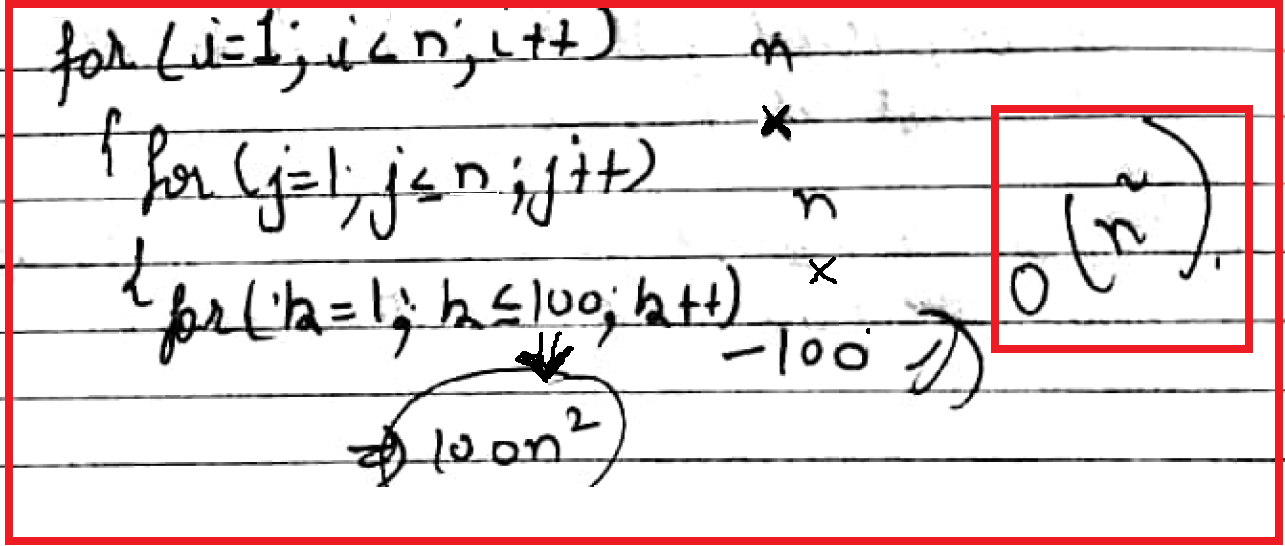 for (i=1; i<n; i++) n
×
{ for (j=1; j≤n; j++)
n
×
{ for (k=1; k≤100; k++)
-100
O(n²).
⇒ 100n²